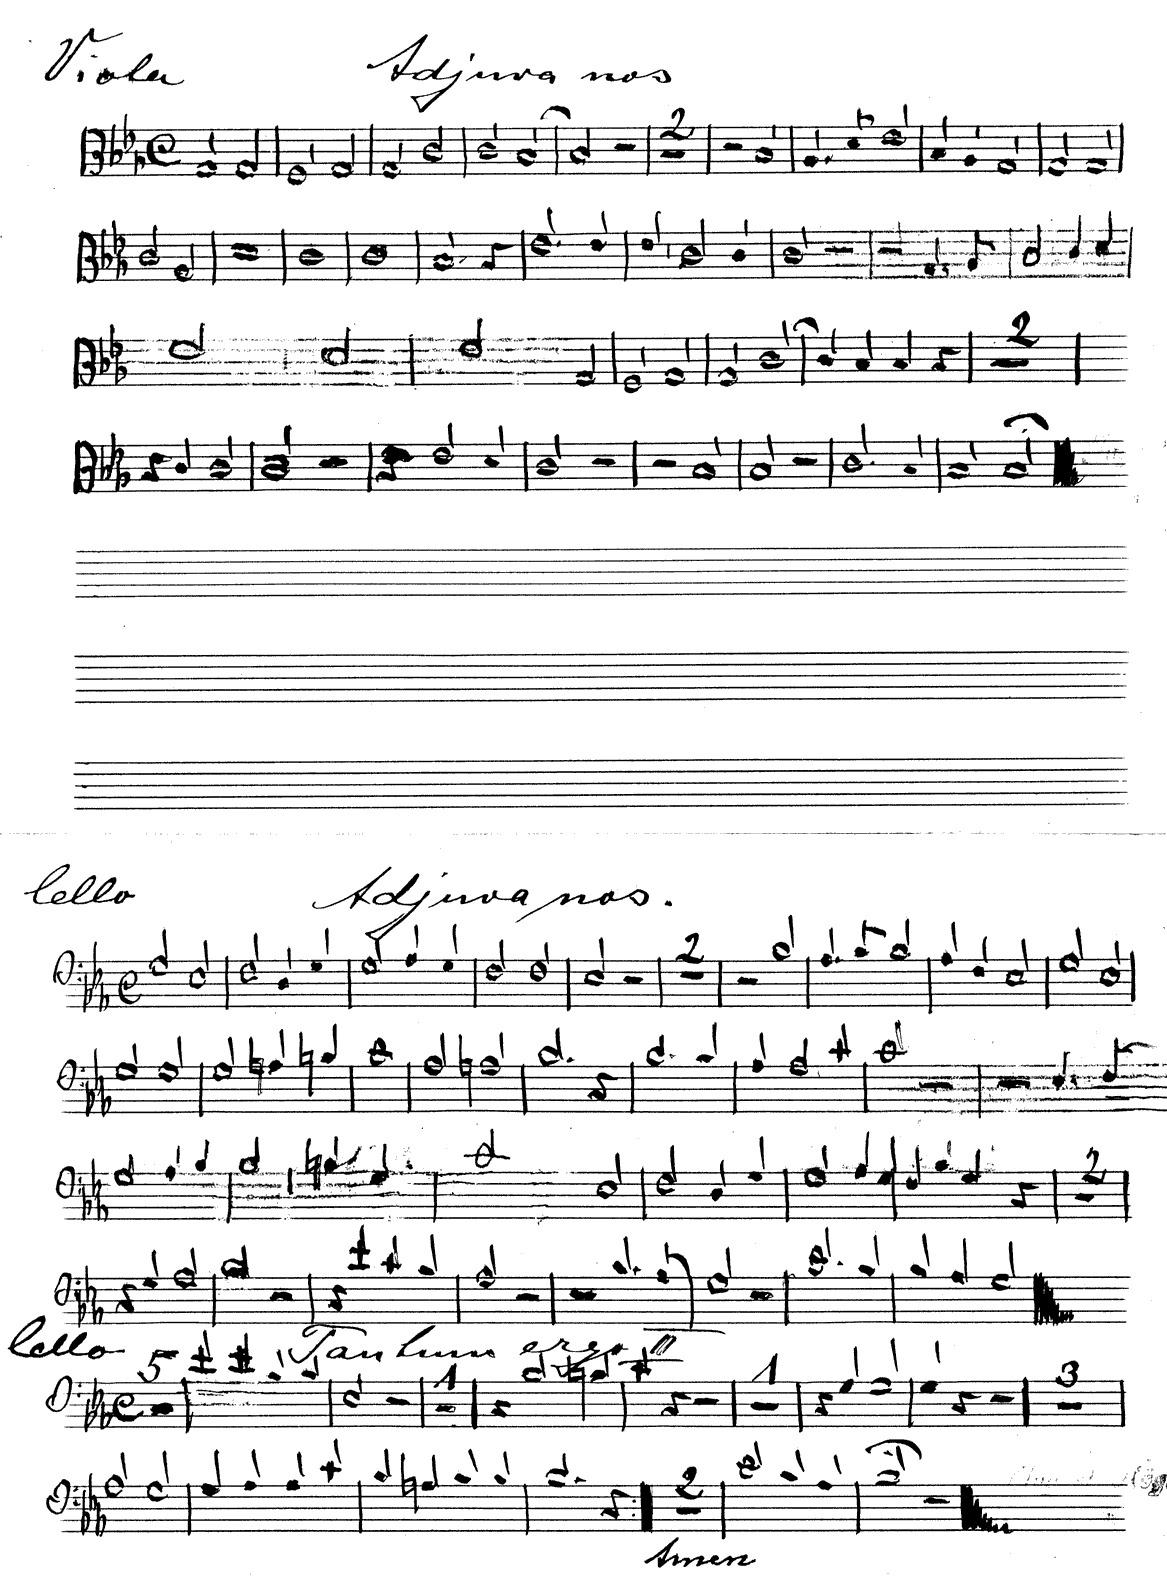 Viola Adjuva nos
2
2
Cello Adjuva nos.
2
2
Cello Tantum ergo II
5 1 1 3
2
Amen